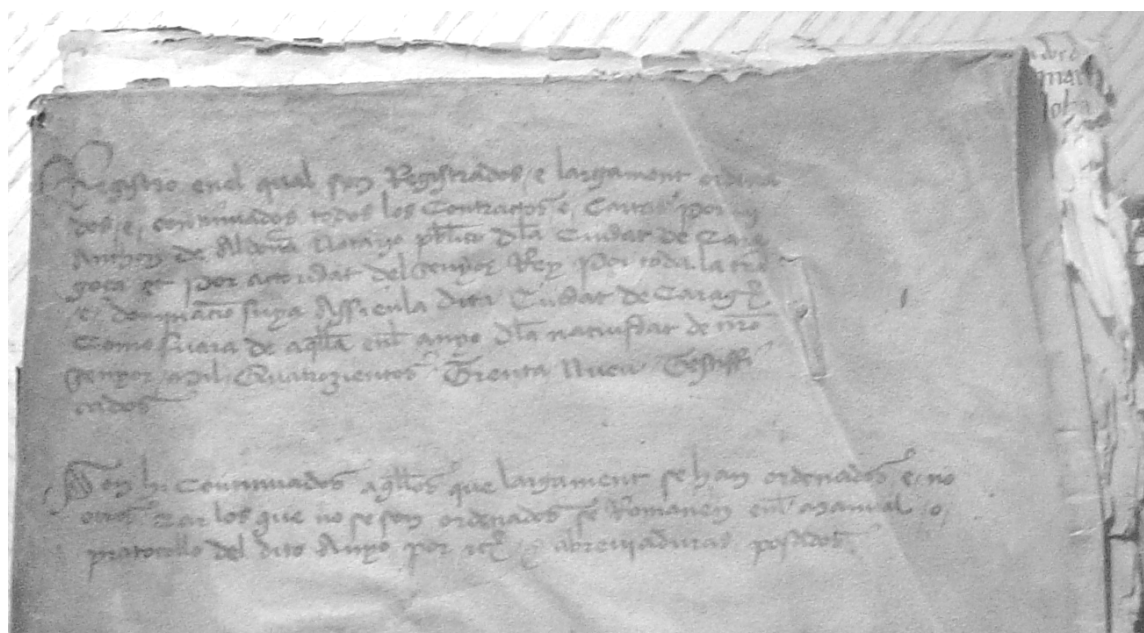 Registro en el qual son Registrados, e largament ordena
dos, e, continuados todos los Contractos e, Cartas por mi
Anthon de Aldovera Notario publico dla Ciudat de Cara
goça et por actoridat del senyor Rey por toda la trra
e, dominacio suya Assi en la dita Ciudat de Carag
Como fuera de aqlla enl anyo dla natividat de nro
senyor Mil Quatrozientos Trenta Nueu Testiffi
cados
Son hi Continuados aqllos que largament se han ordenados e, no
otros Car los que no se son ordenados se Romanen enl Manual, o,
protocollo del dito Anyo por abreviaduras posados